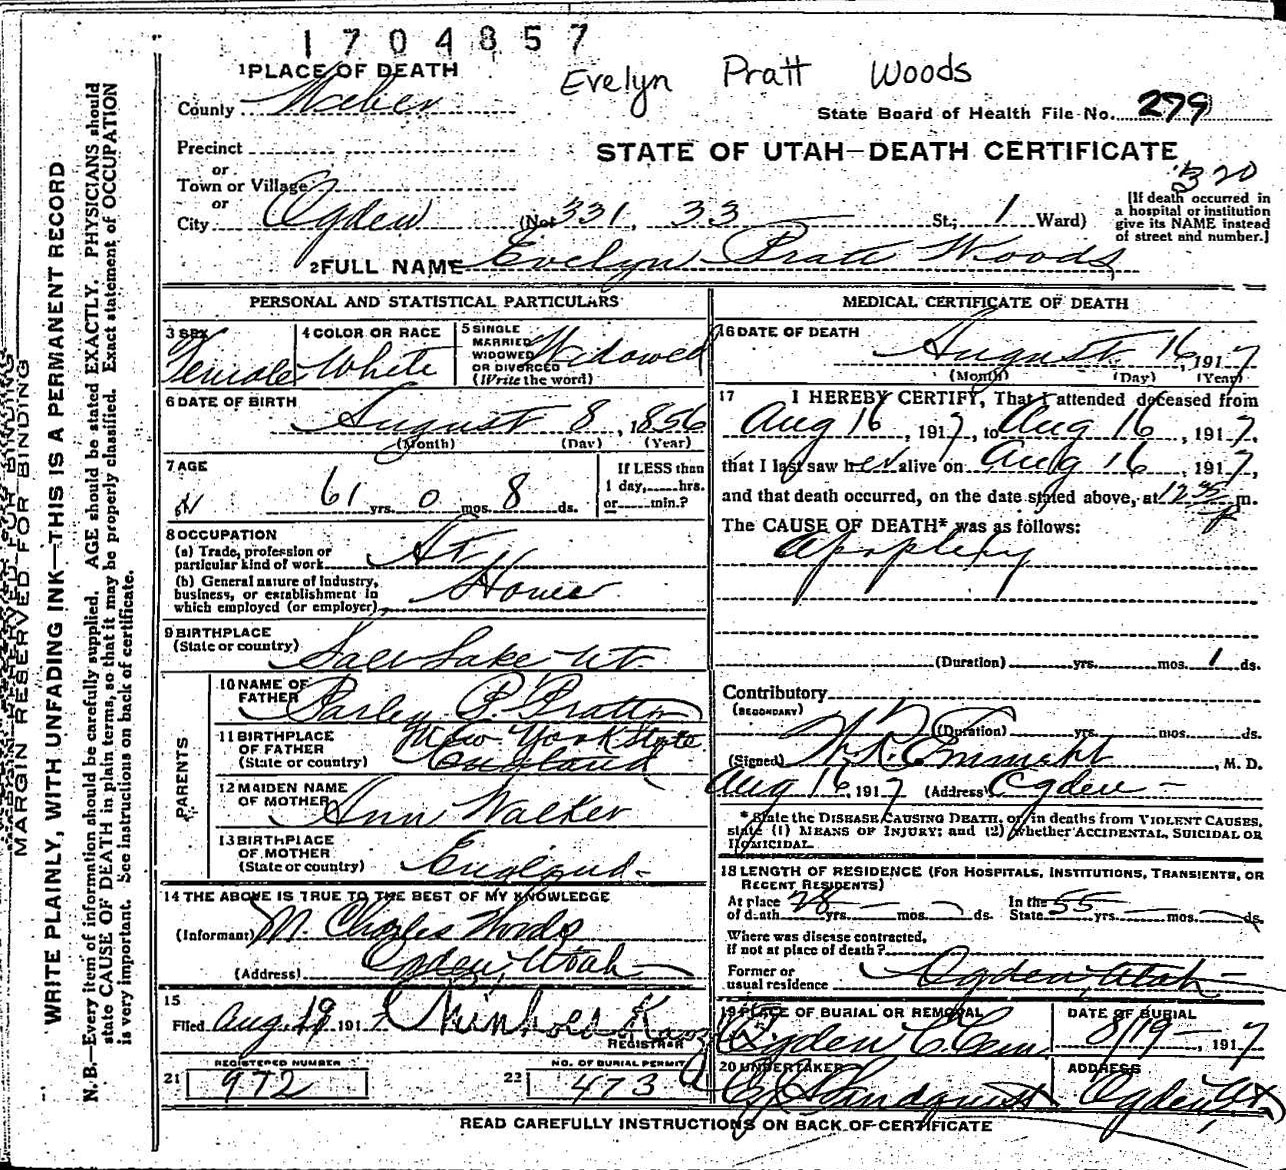 1704857
Evelyn Pratt Woods
1 PLACE OF DEATH
County Weber
State Board of Health File No. 279
Precinct
or
Town or Village
or
STATE OF UTAH—DEATH CERTIFICATE
320
City Ogden (No. 331, 33 St.; 1 Ward)
[If death occurred in
a hospital or institution
give its NAME instead
of street and number.]
2 FULL NAME Evelyn Pratt Woods
PERSONAL AND STATISTICAL PARTICULARS
3 SEX Female
4 COLOR OR RACE White
5 SINGLE
MARRIED
WIDOWED
OR DIVORCED
(Write the word) Widowed
6 DATE OF BIRTH
August 8, 1856
(Month) (Day) (Year)
7 AGE
61 yrs. 0 mos. 8 ds.
If LESS than
1 day,......hrs.
or......min.?
8 OCCUPATION
(a) Trade, profession or
particular kind of work At
(b) General nature of Industry,
business, or establishment in
which employed (or employer) Home
9 BIRTHPLACE
(State or country) Salt Lake Ut
PARENTS
10 NAME OF
FATHER Parley P. Pratt
11 BIRTHPLACE
OF FATHER
(State or country) New York State
England
12 MAIDEN NAME
OF MOTHER Ann Walker
13 BIRTHPLACE
OF MOTHER
(State or country) England
14 THE ABOVE IS TRUE TO THE BEST OF MY KNOWLEDGE
(Informant) M. Charles Woods
(Address) Ogden, Utah
15
Filed Aug. 19 1917
REGISTRAR
REGISTERED NUMBER
21 972
NO. OF BURIAL PERMIT
22 473
MEDICAL CERTIFICATE OF DEATH
16 DATE OF DEATH
August 16, 1917
(Month) (Day) (Year)
17 I HEREBY CERTIFY, That I attended deceased from
Aug 16, 1917, to Aug 16, 1917,
that I last saw her alive on Aug 16, 1917,
and that death occurred, on the date stated above, at 12 35 P m.
The CAUSE OF DEATH* was as follows:
Apoplexy
(Duration) yrs. mos. 1 ds.
Contributory
(SECONDARY)
(Duration) yrs. mos. ds.
(Signed) , M. D.
Aug 16, 1917 (Address) Ogden
* State the DISEASE CAUSING DEATH, or, in deaths from VIOLENT CAUSES,
state (1) MEANS OF INJURY; and (2) whether ACCIDENTAL, SUICIDAL OR
HOMICIDAL.
18 LENGTH OF RESIDENCE (FOR HOSPITALS, INSTITUTIONS, TRANSIENTS, OR
RECENT RESIDENTS)
At place
of death 28 yrs. — mos. — ds. In the
State 55 yrs. — mos. — ds.
Where was disease contracted,
if not at place of death?
Former or
usual residence Ogden, Utah
19 PLACE OF BURIAL OR REMOVAL
Ogden C. Cem.
DATE OF BURIAL
8/19, 1917
20 UNDERTAKER
ADDRESS
Ogden, Ut
READ CAREFULLY INSTRUCTIONS ON BACK OF CERTIFICATE
MARGIN RESERVED FOR BINDING
WRITE PLAINLY, WITH UNFADING INK—THIS IS A PERMANENT RECORD
N. B.—Every item of information should be carefully supplied. AGE should be stated EXACTLY. PHYSICIANS should
state CAUSE OF DEATH in plain terms, so that it may be properly classified. Exact statement of OCCUPATION
is very important. See instructions on back of certificate.